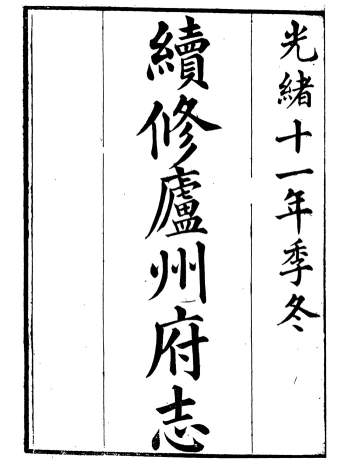 光緒十一年季冬
續修廬州府志